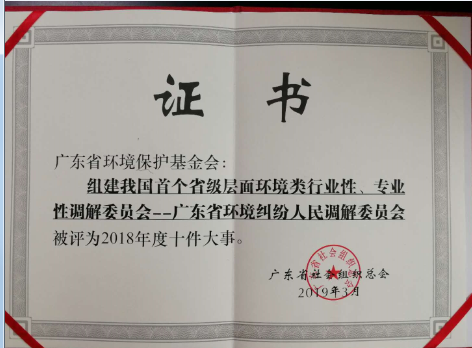 证 书
广东省环境保护基金会：
组建我国首个省级层面环境类行业性、专业
性调解委员会--广东省环境纠纷人民调解委员会
被评为2018年度十件大事。
广东省社会组织总会
2019年3月